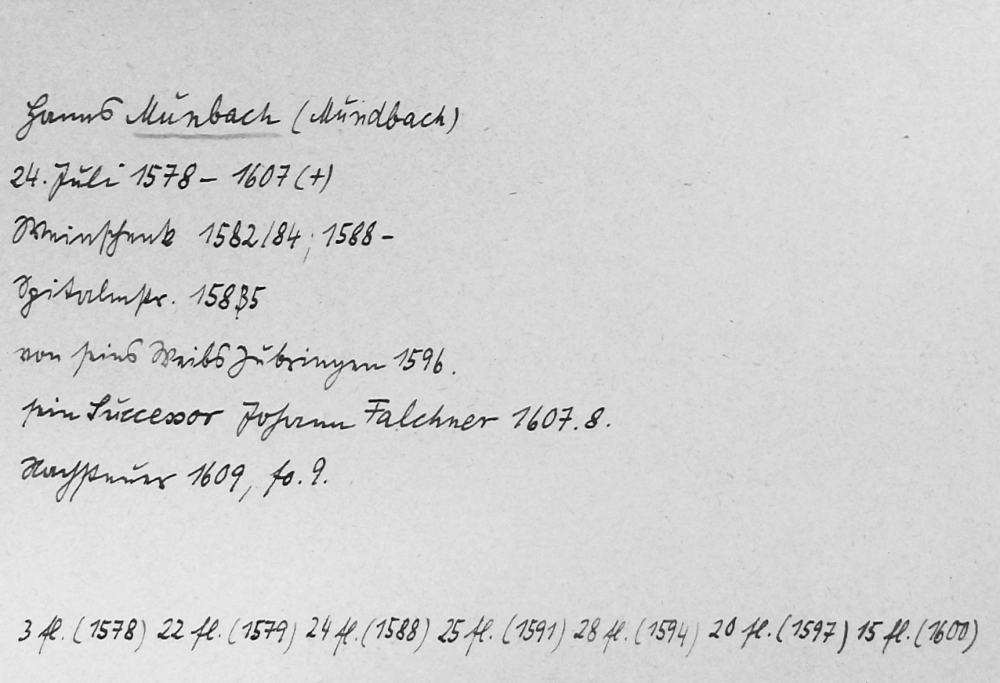 Hanns Munbach (Mundbach)
24. Juli 1578 – 1607 (+)
Weinschenk 1582/84; 1588 –
Spitalmstr. 1585
von seins Weibs Zubringen 1596.
sein Successor Johann Falchner 1607.8.
Nachsteuer 1609, fo. 9.
3 fl. (1578) 22 fl. (1579) 24 fl. (1588) 25 fl. (1591) 28 fl. (1594) 20 fl. (1597) 15 fl. (1600)